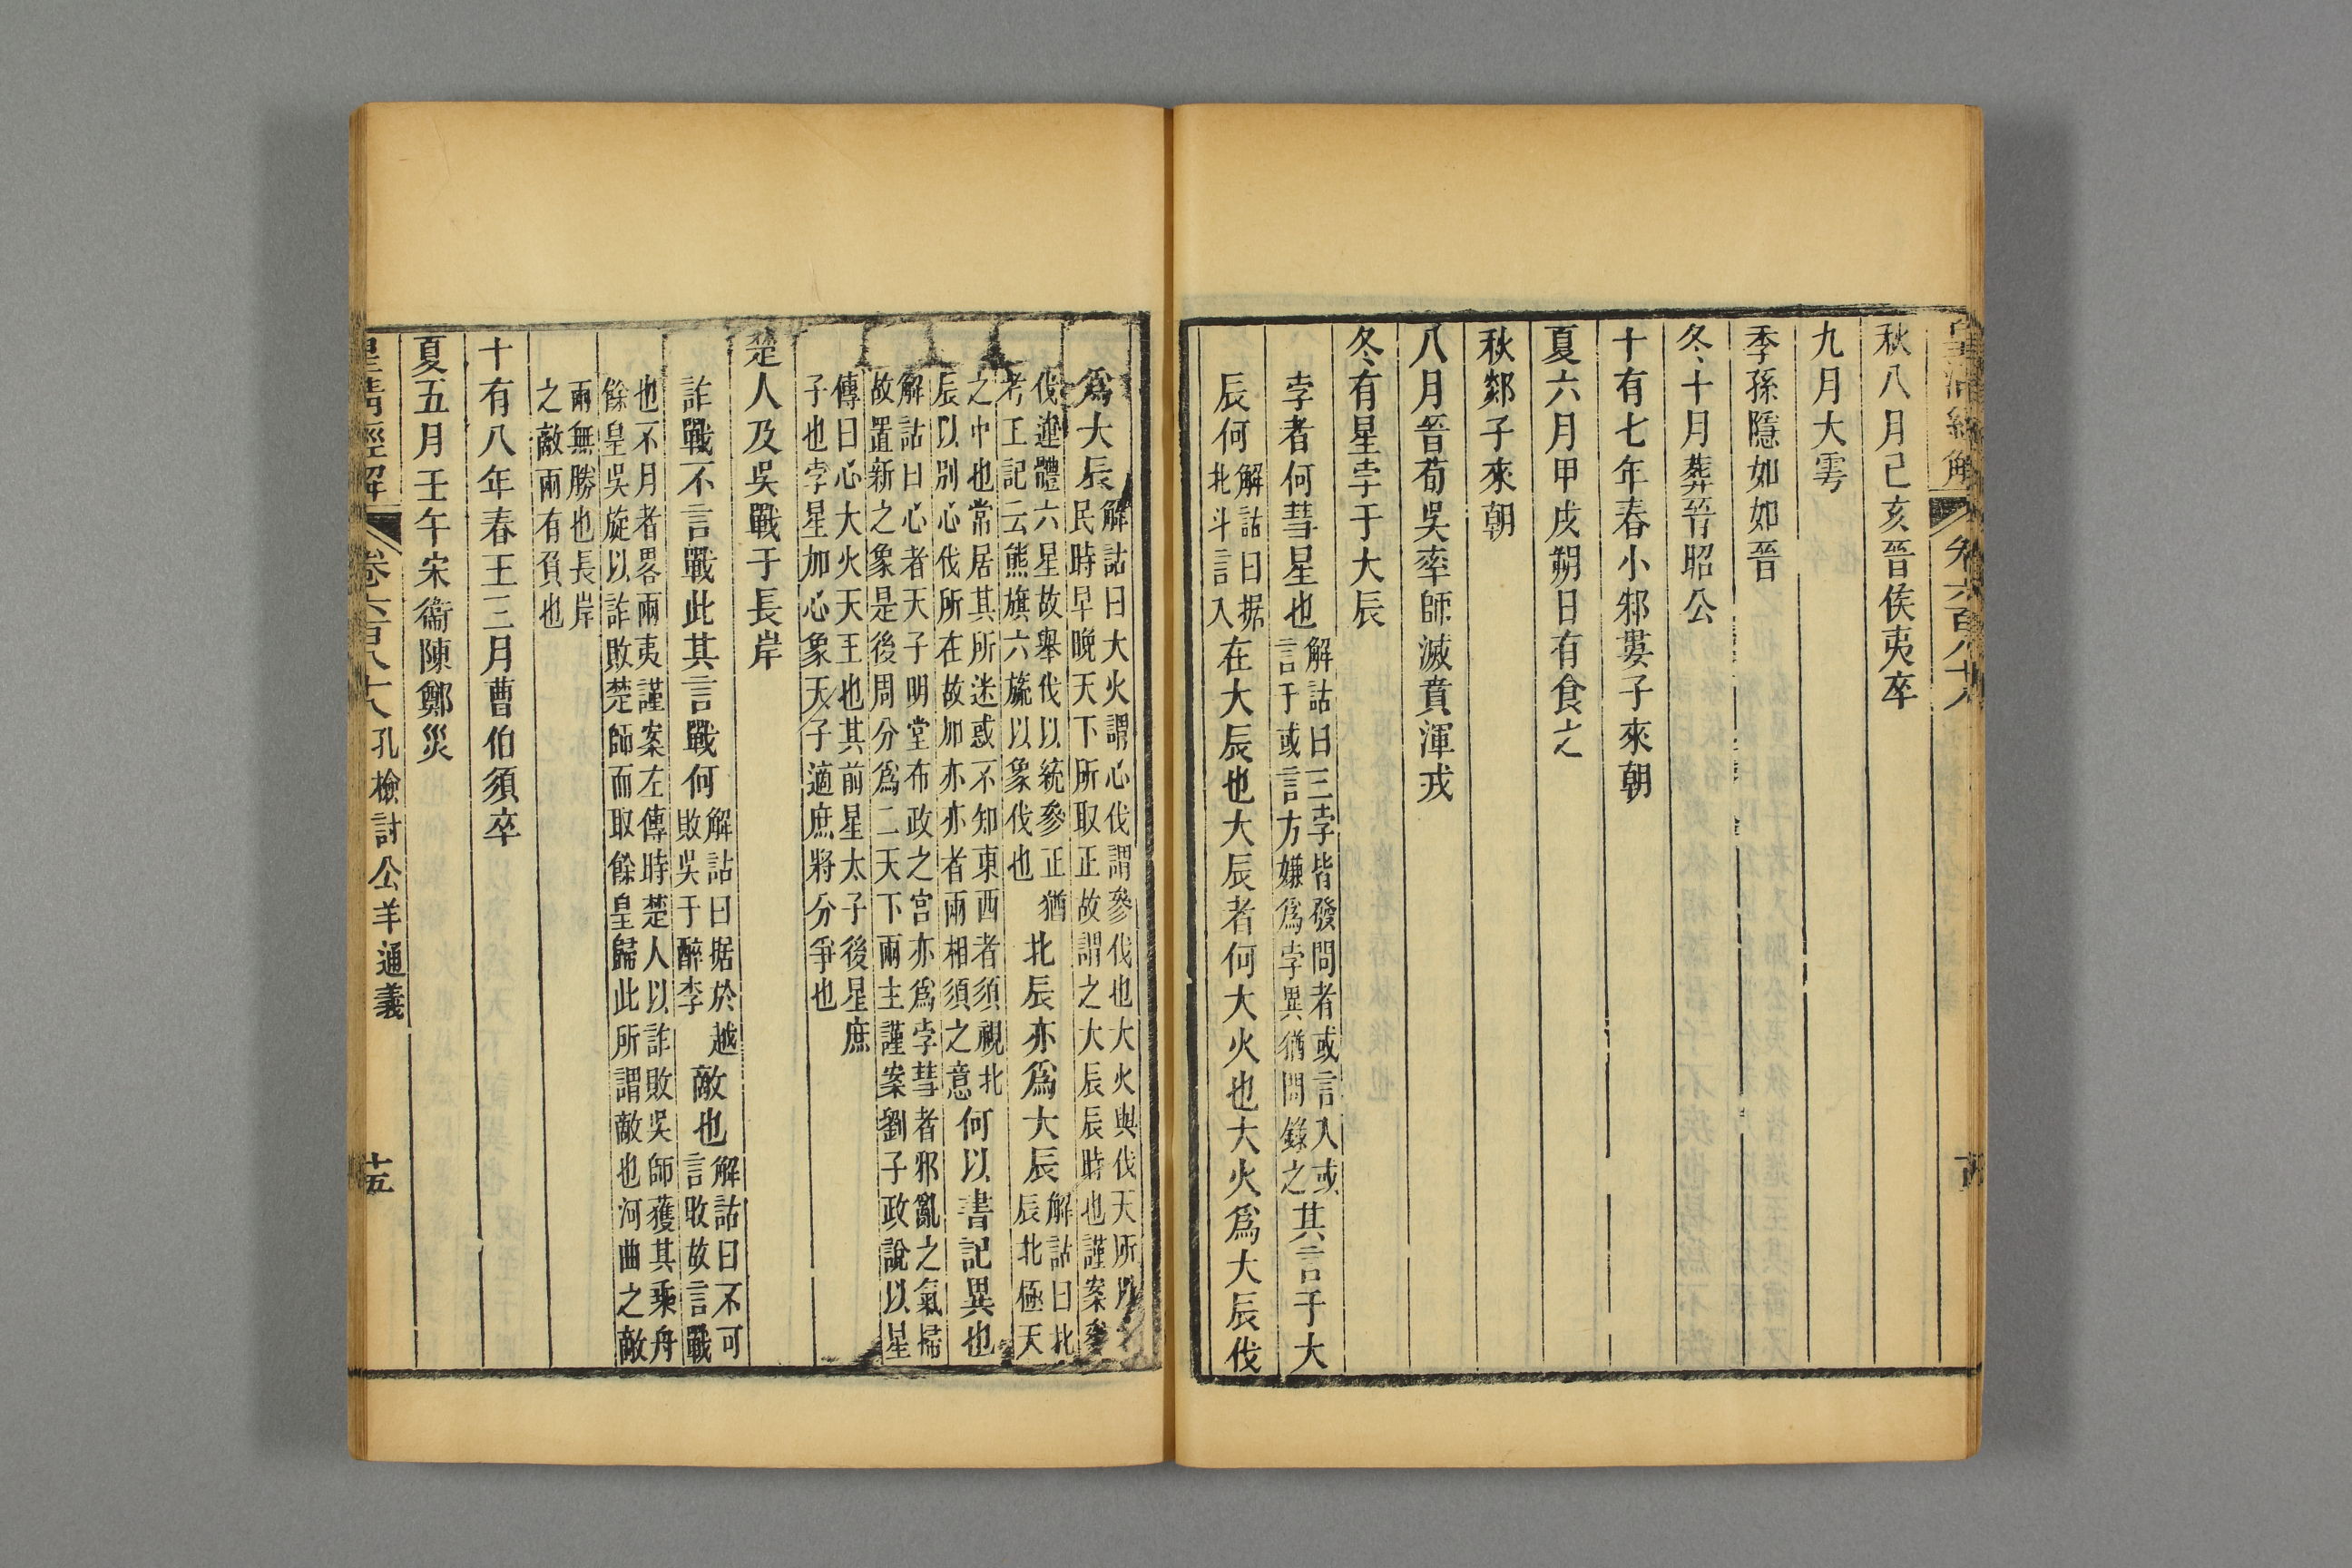 皇清經解 卷六百八十八
秋八月己亥晉侯夷卒
九月大雩
季孫隱如如晉
冬十月葬晉昭公
十有七年春小邾婁子來朝
夏六月甲戌朔日有食之
秋郯子來朝
八月晉荀吳率師滅賁渾戎
冬有星孛于大辰
孛者何彗星也解詁曰三孛皆發問者或言入或言于或言方嫌爲孛異猶問錄之其言于大
辰何解詁曰据北斗言入在大辰也大辰者何大火也大火爲大辰伐
爲大辰解詁曰大火謂心伐謂參伐也大火與伐天所以民時早晚天下所取正故謂之大辰辰時也謹案參
伐連體六星故舉伐以統參正猶考工記云熊旗六旒以象伐也北辰亦爲大辰解詁曰北辰北極天
之中也常居其所迷惑不知東西者須視北辰以別心伐所在故加亦亦者兩相須之意何以書記異也
解詁曰心者天子明堂布政之宮亦爲孛彗者邪亂之氣掃故置新之象是後周分爲二天下兩主謹案劉子政說以星
傳曰心大火天王也其前星太子後星庶子也孛星加心象天子適庶將分爭也
楚人及吳戰于長岸
詐戰不言戰此其言戰何解詁曰据於越敗吳于醉李敵也解詁曰不可言敗故言戰
也不月者畧兩夷謹案左傳時楚人以詐敗吳師獲其乘舟餘皇吳旋以詐敗楚師而取餘皇歸此所謂敵也河曲之敵
兩無勝也長岸之敵兩有負也
十有八年春王三月曹伯須卒
夏五月壬午宋衞陳鄭災
皇清經解 卷六百八十八 孔檢討公羊通義 十五